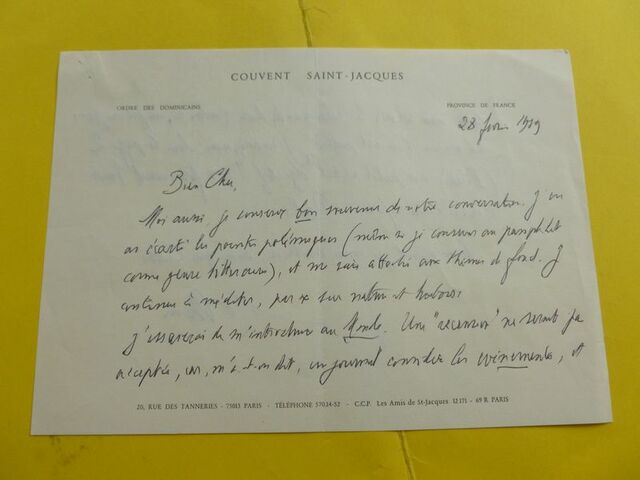 COUVENT SAINT-JACQUES
ORDRE DES DOMINICAINS
PROVINCE DE FRANCE
28 1979
Bien Cher,
Moi aussi, je conserve bon souvenir de notre conversation. J'en
ai écarté les pointes polémiques (même si je consens au pamphlet
comme genre littéraire), et me suis attaché aux thèmes de fond. Je
continue à méditer, par
J'essaierai de m'introduire au Monde. Une "recension" ne serait pas
acceptée, car, m'a-t-on dit, un journal considère les événements, et
20, RUE DES TANNERIES - 75013 PARIS - TÉLÉPHONE 570.34-52 - C.C.P. Les Amis de St-Jacques 12 171 - 69 R PARIS